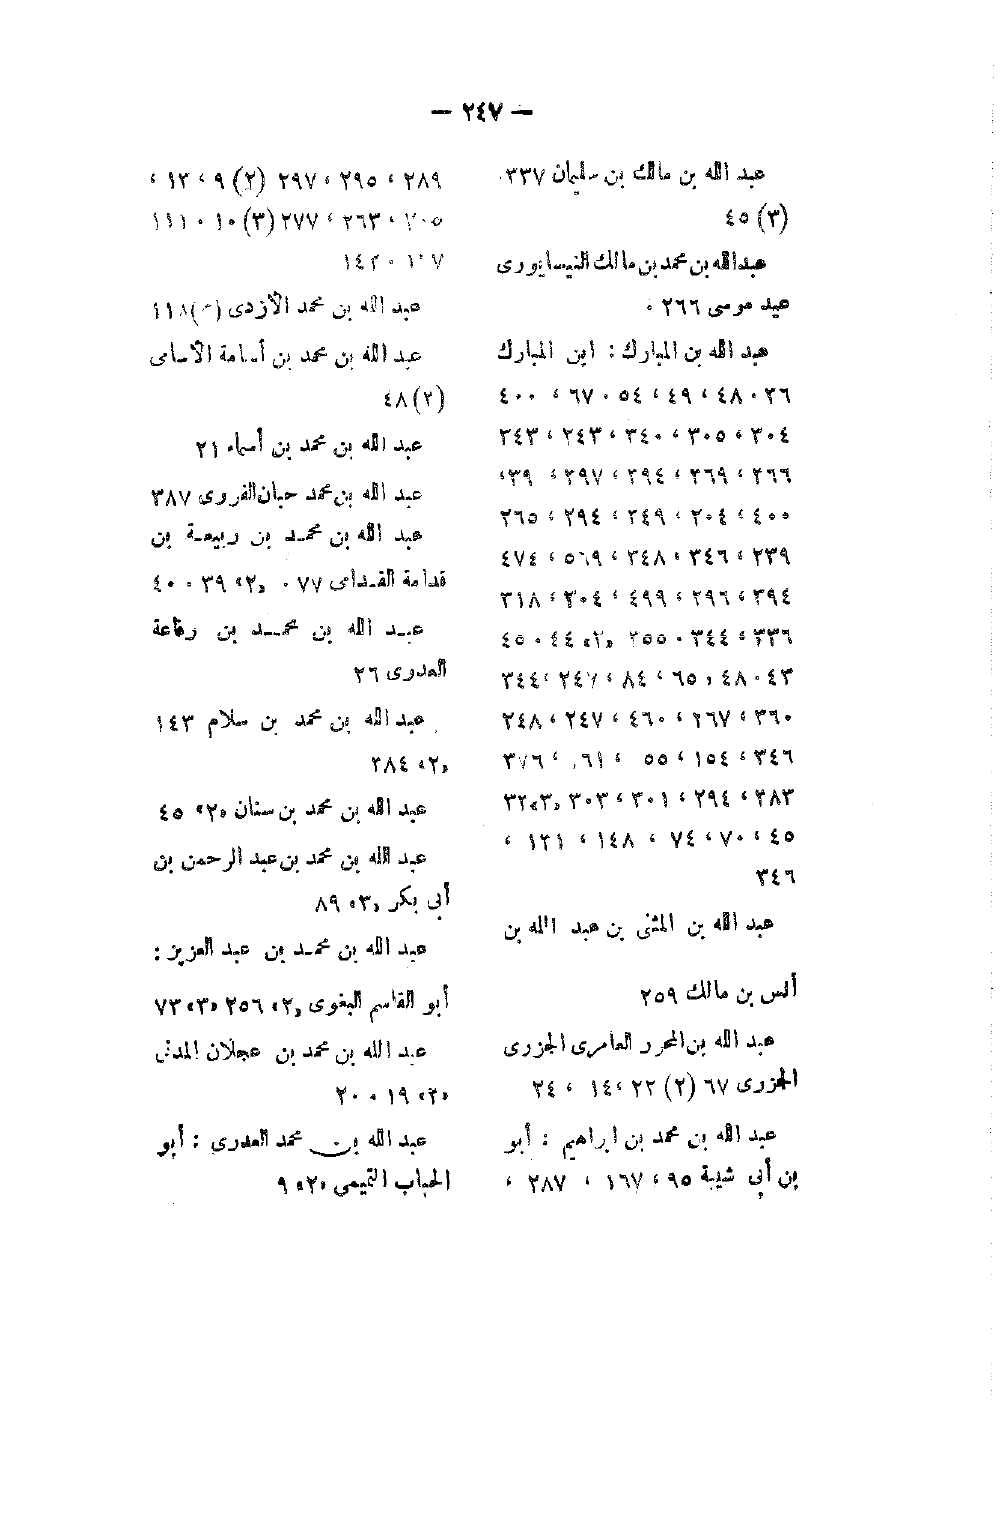 — ٢٤٧ —
عبد الله بن مالك بن سليمان ٣٣٧.
(٣) ٤٥
عبدالله بن محمد بن مالك النيسابورى
عيد موسى ٢٦٦ .
عبد الله بن المبارك : ابن المبارك
٤٨٠٣٦ ، ٤٩ ، ٥٤ ٠ ٦٧ ، ٤٠٠
٣٠٤ ، ٣٠٥ ، ٣٤٠ ، ٢٤٣ ، ٢٤٣
٢٦٦ ، ٢٦٩ ، ٢٩٤ ، ٢٩٧ ، ٣٩،
٤٠٠ ، ٢٠٤ ، ٢٤٩ ، ٢٩٤ ، ٢٦٥
٢٣٩ ، ٣٤٦ ، ٣٤٨ ، ٥٦٩ ، ٤٧٤
٣٩٤ ، ٢٩٦ ، ٤٩٩ ، ٣٠٤ ، ٣١٨
٣٣٦ ، ٣٤٤ ٠ ٢٥٥ «٢» ٤٤ ٠ ٤٥
٤٨٠٤٣ ، ٦٥ ، ٨٤ ، ٢٤٧ ، ٣٤٤
٣٦٠ ، ٢٦٧ ، ٤٦٠ ، ٢٤٧ ، ٢٤٨
٣٤٦ ، ١٥٤ ، ٥٥ ، ٦١. ، ٣٧٦
٣٨٣ ، ٢٩٤ ، ٣٠١ ، ٣٠٣ «٣» ٣٢
٤٥ ، ٧٠ ، ٧٤ ، ١٤٨ ، ١٢١ ،
٣٤٦
عبد الله بن المثنى بن عبد الله بن
ألس بن مالك ٢٥٩
عبد الله بن المحرر العامرى الجزرى
الجزرى ٦٧ (٢) ٢٢ ،١٤ ، ٢٤
عبد الله بن محمد بن ابراهيم : أبو
بن أبي شيبة ٩٥ ، ١٦٧ ، ٢٨٧ ،
٢٨٩ ، ٢٩٥ ، ٢٩٧ (٢) ٩ ، ١٣ ،
٢٠٥ ، ٢٦٣ ، ٢٧٧ (٣) ١٠ ٠ ١١١
١٤٢ ٠
عبد الله بن محمد الأزدى ١١٨
عبد الله بن محمد بن أسامة الأسامى
(٢) ٤٨
عبد الله بن محمد بن أسماء ٢١
عبد الله بن محمد حبان الفروى ٣٨٧
عبد الله بن محمد بن ربيعة بن
قدامة القدامى ٧٧ ٠ «٢» ٣٩ ٠ ٤٠
عبد الله بن محمد بن رفاعة
العدوى ٢٦
عبد الله بن محمد بن سلام ١٤٣
«٢» ٣٨٤
عبد الله بن محمد بن سنان «٢» ٤٥
عبد الله بن محمد بن عبد الرحمن بن
أبى بكر «٣» ٨٩
عبد الله بن محمد بن عبد العزيز :
أبو القاسم البغوى «٢» ٢٥٦ «٣» ٧٣
عبد الله بن محمد بن عجلان المدنى
«٢» ١٩ ٠ ٢٠
عبد الله بن محمد العدرى : أبو
الحباب التميمى «٢» ٩